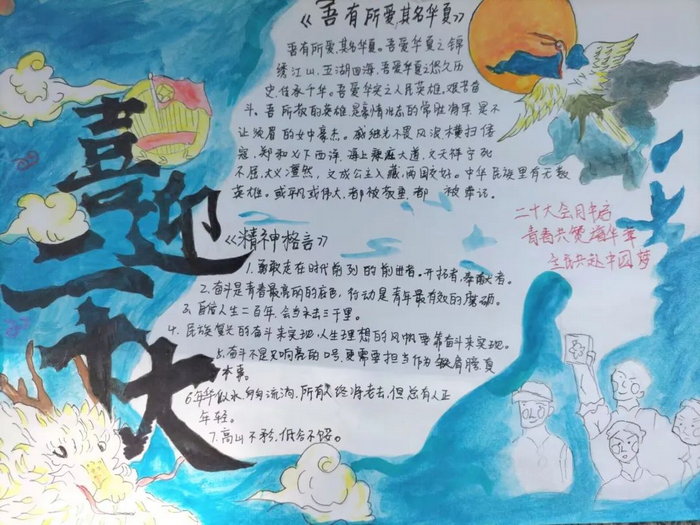 喜迎二十大
《吾有所爱,其名华夏》
吾有所爱,其名华夏。吾爱华夏之锦
绣江山,五湖四海,吾爱华夏之悠久历
史,传承千年。吾爱华夏之人民英雄,艰苦奋
斗。吾所敬的英雄,是豪情壮志的常胜将军,是不
让须眉的女中豪杰。戚继光不畏风浪横扫倭
寇,郑和七下西洋,海上康庄大道,文天祥宁死
不屈,大义凛然,文成公主入藏,两国交好。中华民族里有无数
英雄。或平凡或伟大,都被敬重,都被牵记。
《精神格言》
1.勇敢走在时代前列的前进者。开拓者,奉献者。
2.奋斗是青春最亮丽的底色,行动是青年最有效的磨砺。
3.自信人生二百年,会当水击三千里。
4.民族复兴的奋斗来实现,人生理想的风帆要靠奋斗来实现。
5.奋斗不是只响亮的口号更需要担当作为
本事。
6.年华似水匆匆流淌,所有人终将老去,但总有人正
年轻。
7.高山不矜,低谷不馁。
二十大会日年启
青春共赞
立志共赴中国梦